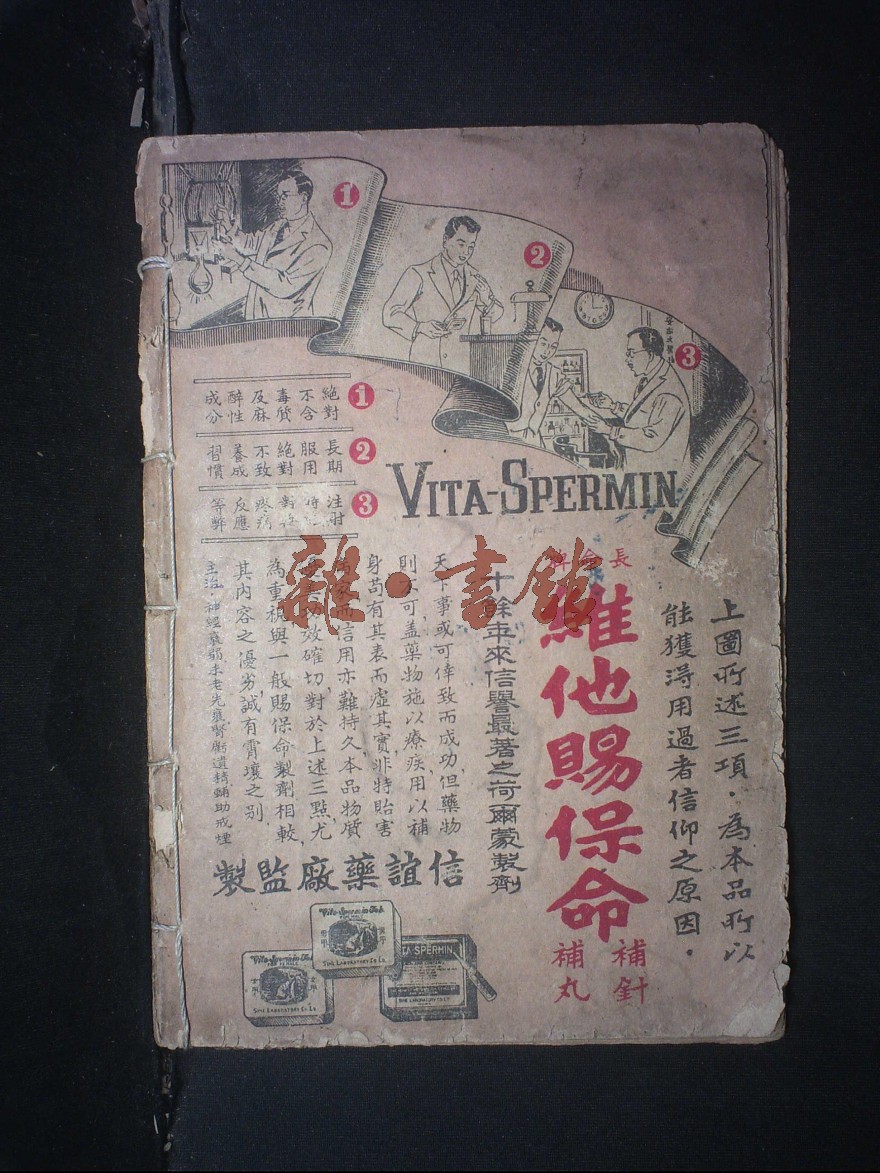 1
2
3
上圖所述三項。為本品所以
能獲得用過者信仰之原因。
VITA-SPERMIN
長命牌
維他賜保命
補針
補丸
十餘年來信譽最著之荷爾蒙製劑
1
絕對
不含
毒質
及麻
醉性
成分
2
長期
服用
絕對
不致
養成
習慣
3
注射
疼痛
反應
等弊
天下事或可倖致而成功,但藥物
則不可,蓋藥物施以療疾用以補
身苟有其表而虛其實非特貽害
而信用亦難持久本品物質
效確切,對於上述三點,尤
為重視與一般賜保命製劑相較,
其內容之優劣,誠有霄壤之別
主治:神經衰弱未老先衰腎虧遺精輔助戒煙
信誼藥廠監製
Vita-Spermin Tab.
SINE LABORATORY CO LD.
Vita-Spermin Tab.
SINE LABORATORY CO LD.
VITA SPERMIN
雜·書館